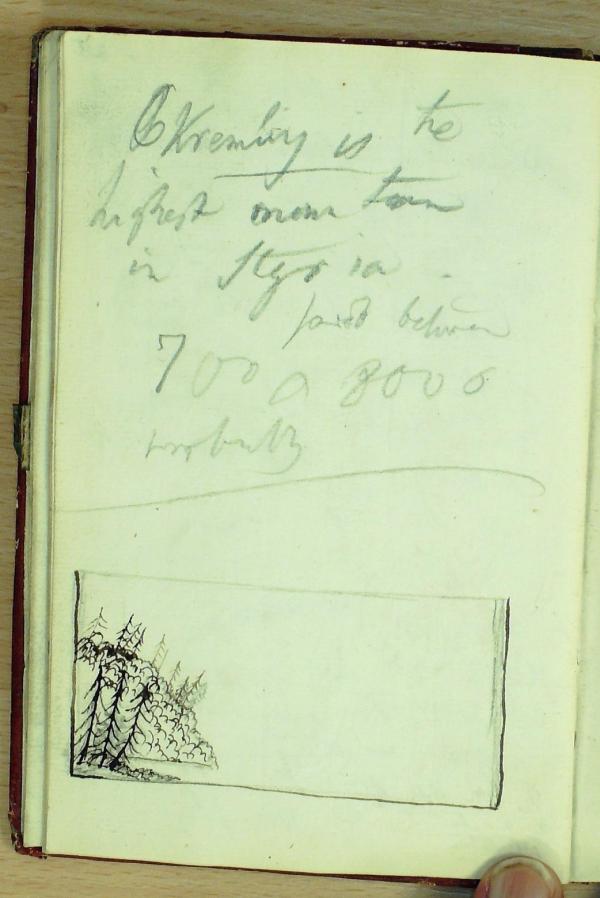 is the
highest mountain
in Styria.
between
7000 8000
probably